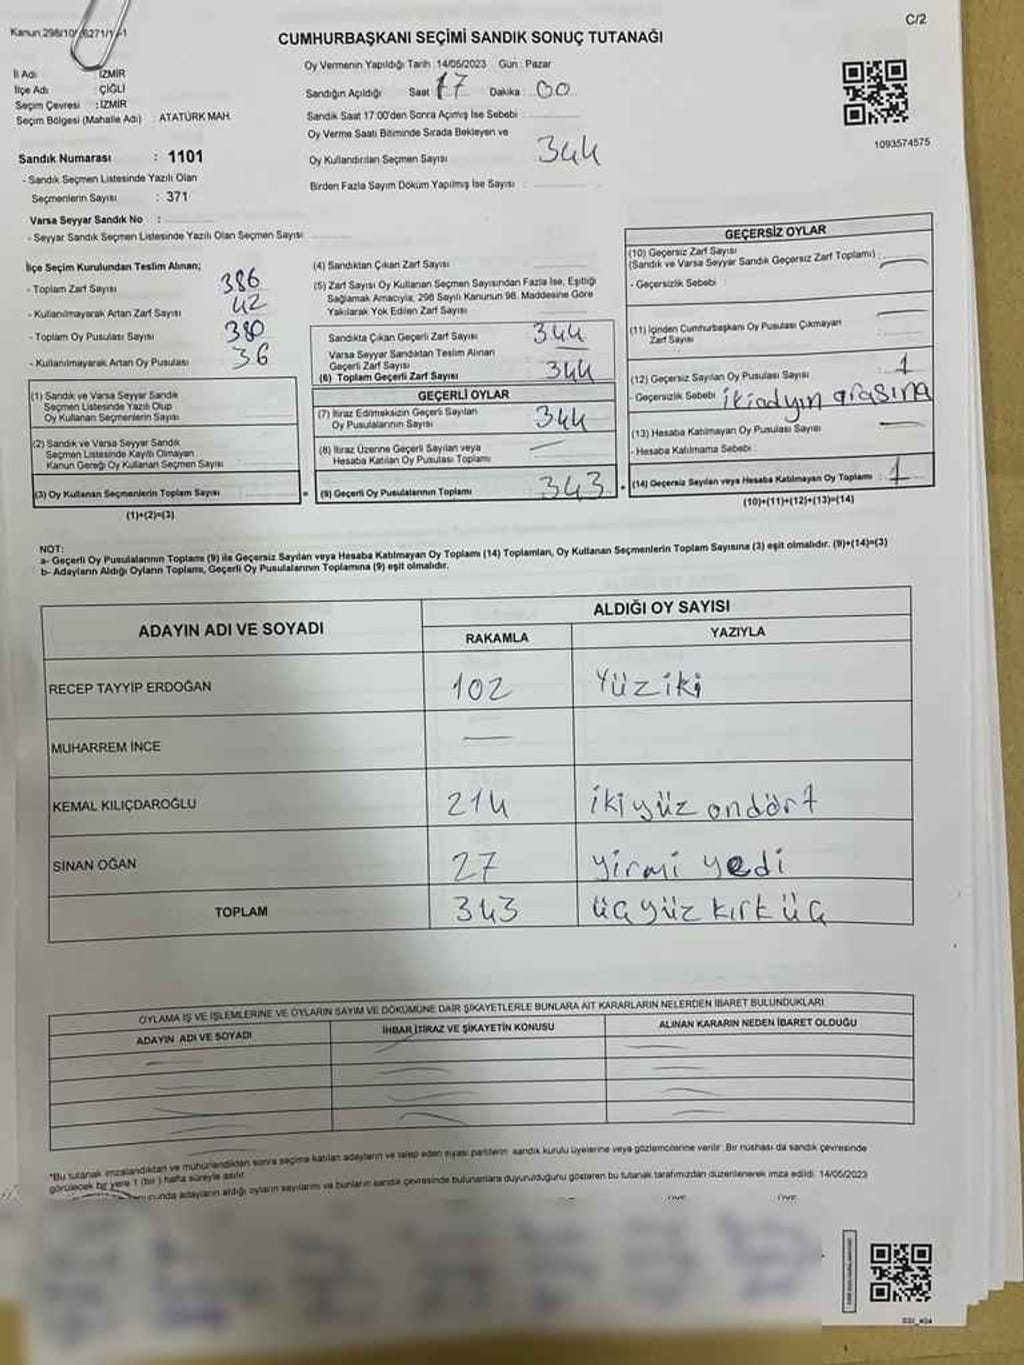 C/2
Kanun:298/10
CUMHURBAŞKANI SEÇİMİ SANDIK SONUÇ TUTANAĞI
İl Adı : İZMİR
İlçe Adı : ÇİĞLİ
Seçim Çevresi : İZMİR
Seçim Bölgesi (Mahalle Adı) : ATATÜRK MAH.
Oy Vermenin Yapıldığı Tarih :14/05/2023 Gün : Pazar
Sandığın Açıldığı Saat 17 Dakika : 00
Sandık Saat 17:00'den Sonra Açımış İse Sebebi :
Oy Verme Saati Bitiminde Sırada Bekleyen ve
Oy Kullandırılan Seçmen Sayısı 344
Birden Fazla Sayım Döküm Yapılmış İse Sayısı :
1093574575
Sandık Numarası : 1101
- Sandık Seçmen Listesinde Yazılı Olan
Seçmenlerin Sayısı : 371
Varsa Seyyar Sandık No :
- Seyyar Sandık Seçmen Listesinde Yazılı Olan Seçmen Sayısı
İlçe Seçim Kurulundan Teslim Alınan;
- Toplam Zarf Sayısı 386
- Kullanılmayarak Artan Zarf Sayısı 42
- Toplam Oy Pusulası Sayısı 380
- Kullanılmayarak Artan Oy Pusulası 36
(1) Sandık ve Varsa Seyyar Sandık
Seçmen Listesinde Yazılı Olup
Oy Kullanan Seçmenlerin Sayısı
(2) Sandık ve Varsa Seyyar Sandık
Seçmen Listesinde Kayıtlı Olmayan
Kanun Gereği Oy Kullanan Seçmen Sayısı
(3) Oy Kullanan Seçmenlerin Toplam Sayısı
(1)+(2)=(3)
(4) Sandıktan Çıkan Zarf Sayısı
(5) Zarf Sayısı Oy Kullanan Seçmen Sayısından Fazla İse, Eşitliği
Sağlamak Amacıyla, 298 Sayılı Kanunun 98. Maddesine Göre
Yakılarak Yok Edilen Zarf Sayısı
Sandıkta Çıkan Geçerli Zarf Sayısı 344
Varsa Seyyar Sandıktan Teslim Alınan
Geçerli Zarf Sayısı
(6) Toplam Geçerli Zarf Sayısı 344
GEÇERLİ OYLAR
(7) İtiraz Edilmeksizin Geçerli Sayılan
Oy Pusulalarının Sayısı 344
(8) İtiraz Üzerine Geçerli Sayılan veya
Hesaba Katılan Oy Pusulası Toplamı
= (9) Geçerli Oy Pusulalarının Toplamı 343
GEÇERSİZ OYLAR
(10) Geçersiz Zarf Sayısı
(Sandık ve Varsa Seyyar Sandık Geçersiz Zarf Toplamı)
- Geçersizlik Sebebi
(11) İçinden Cumhurbaşkanı Oy Pusulası Çıkmayan
Zarf Sayısı
(12) Geçersiz Sayılan Oy Pusulası Sayısı 1
- Geçersizlik Sebebi ikiadyın arasına
(13) Hesaba Katılmayan Oy Pusulası Sayısı
- Hesaba Katılmama Sebebi
+ (14) Geçersiz Sayılan veya Hesaba Katılmayan Oy Toplamı 1
(10)+(11)+(12)+(13)=(14)
NOT:
a- Geçerli Oy Pusulalarının Toplamı (9) ile Geçersiz Sayılan veya Hesaba Katılmayan Oy Toplamı (14) Toplamları, Oy Kullanan Seçmenlerin Toplam Sayısına (3) eşit olmalıdır. (9)+(14)=(3)
b- Adayların Aldığı Oyların Toplamı, Geçerli Oy Pusulalarının Toplamına (9) eşit olmalıdır.
ADAYIN ADI VE SOYADI
ALDIĞI OY SAYISI
RAKAMLA YAZIYLA
RECEP TAYYİP ERDOĞAN 102 Yüziki
MUHARREM İNCE —
KEMAL KILIÇDAROĞLU 214 ikiyüz ondört
SİNAN OĞAN 27 yirmi yedi
TOPLAM 343 üçyüz kırk üç
OYLAMA İŞ VE İŞLEMLERİNE VE OYLARIN SAYIM VE DÖKÜMÜNE DAİR ŞİKAYETLERLE BUNLARA AİT KARARLARIN NELERDEN İBARET BULUNDUKLARI
ADAYIN ADI VE SOYADI İHBAR,İTİRAZ VE ŞİKAYETİN KONUSU ALINAN KARARIN NEDEN İBARET OLDUĞU
*Bu tutanak imzalandıktan ve mühürlendikten sonra seçime katılan adayların ve talep eden siyasi partilerin sandık kurulu üyelerine veya gözlemcilerine verilir. Bir nüshası da sandık çevresinde
görülecek bir yere 1 (bir) hafta süreyle asılır.
adayların aldığı oyların sayılarını ve bunların sandık çevresinde bulunanlara duyurulduğunu gösteren bu tutanak tarafımızdan düzenlenerek imza edildi. 14/05/2023
ÜYE ÜYE